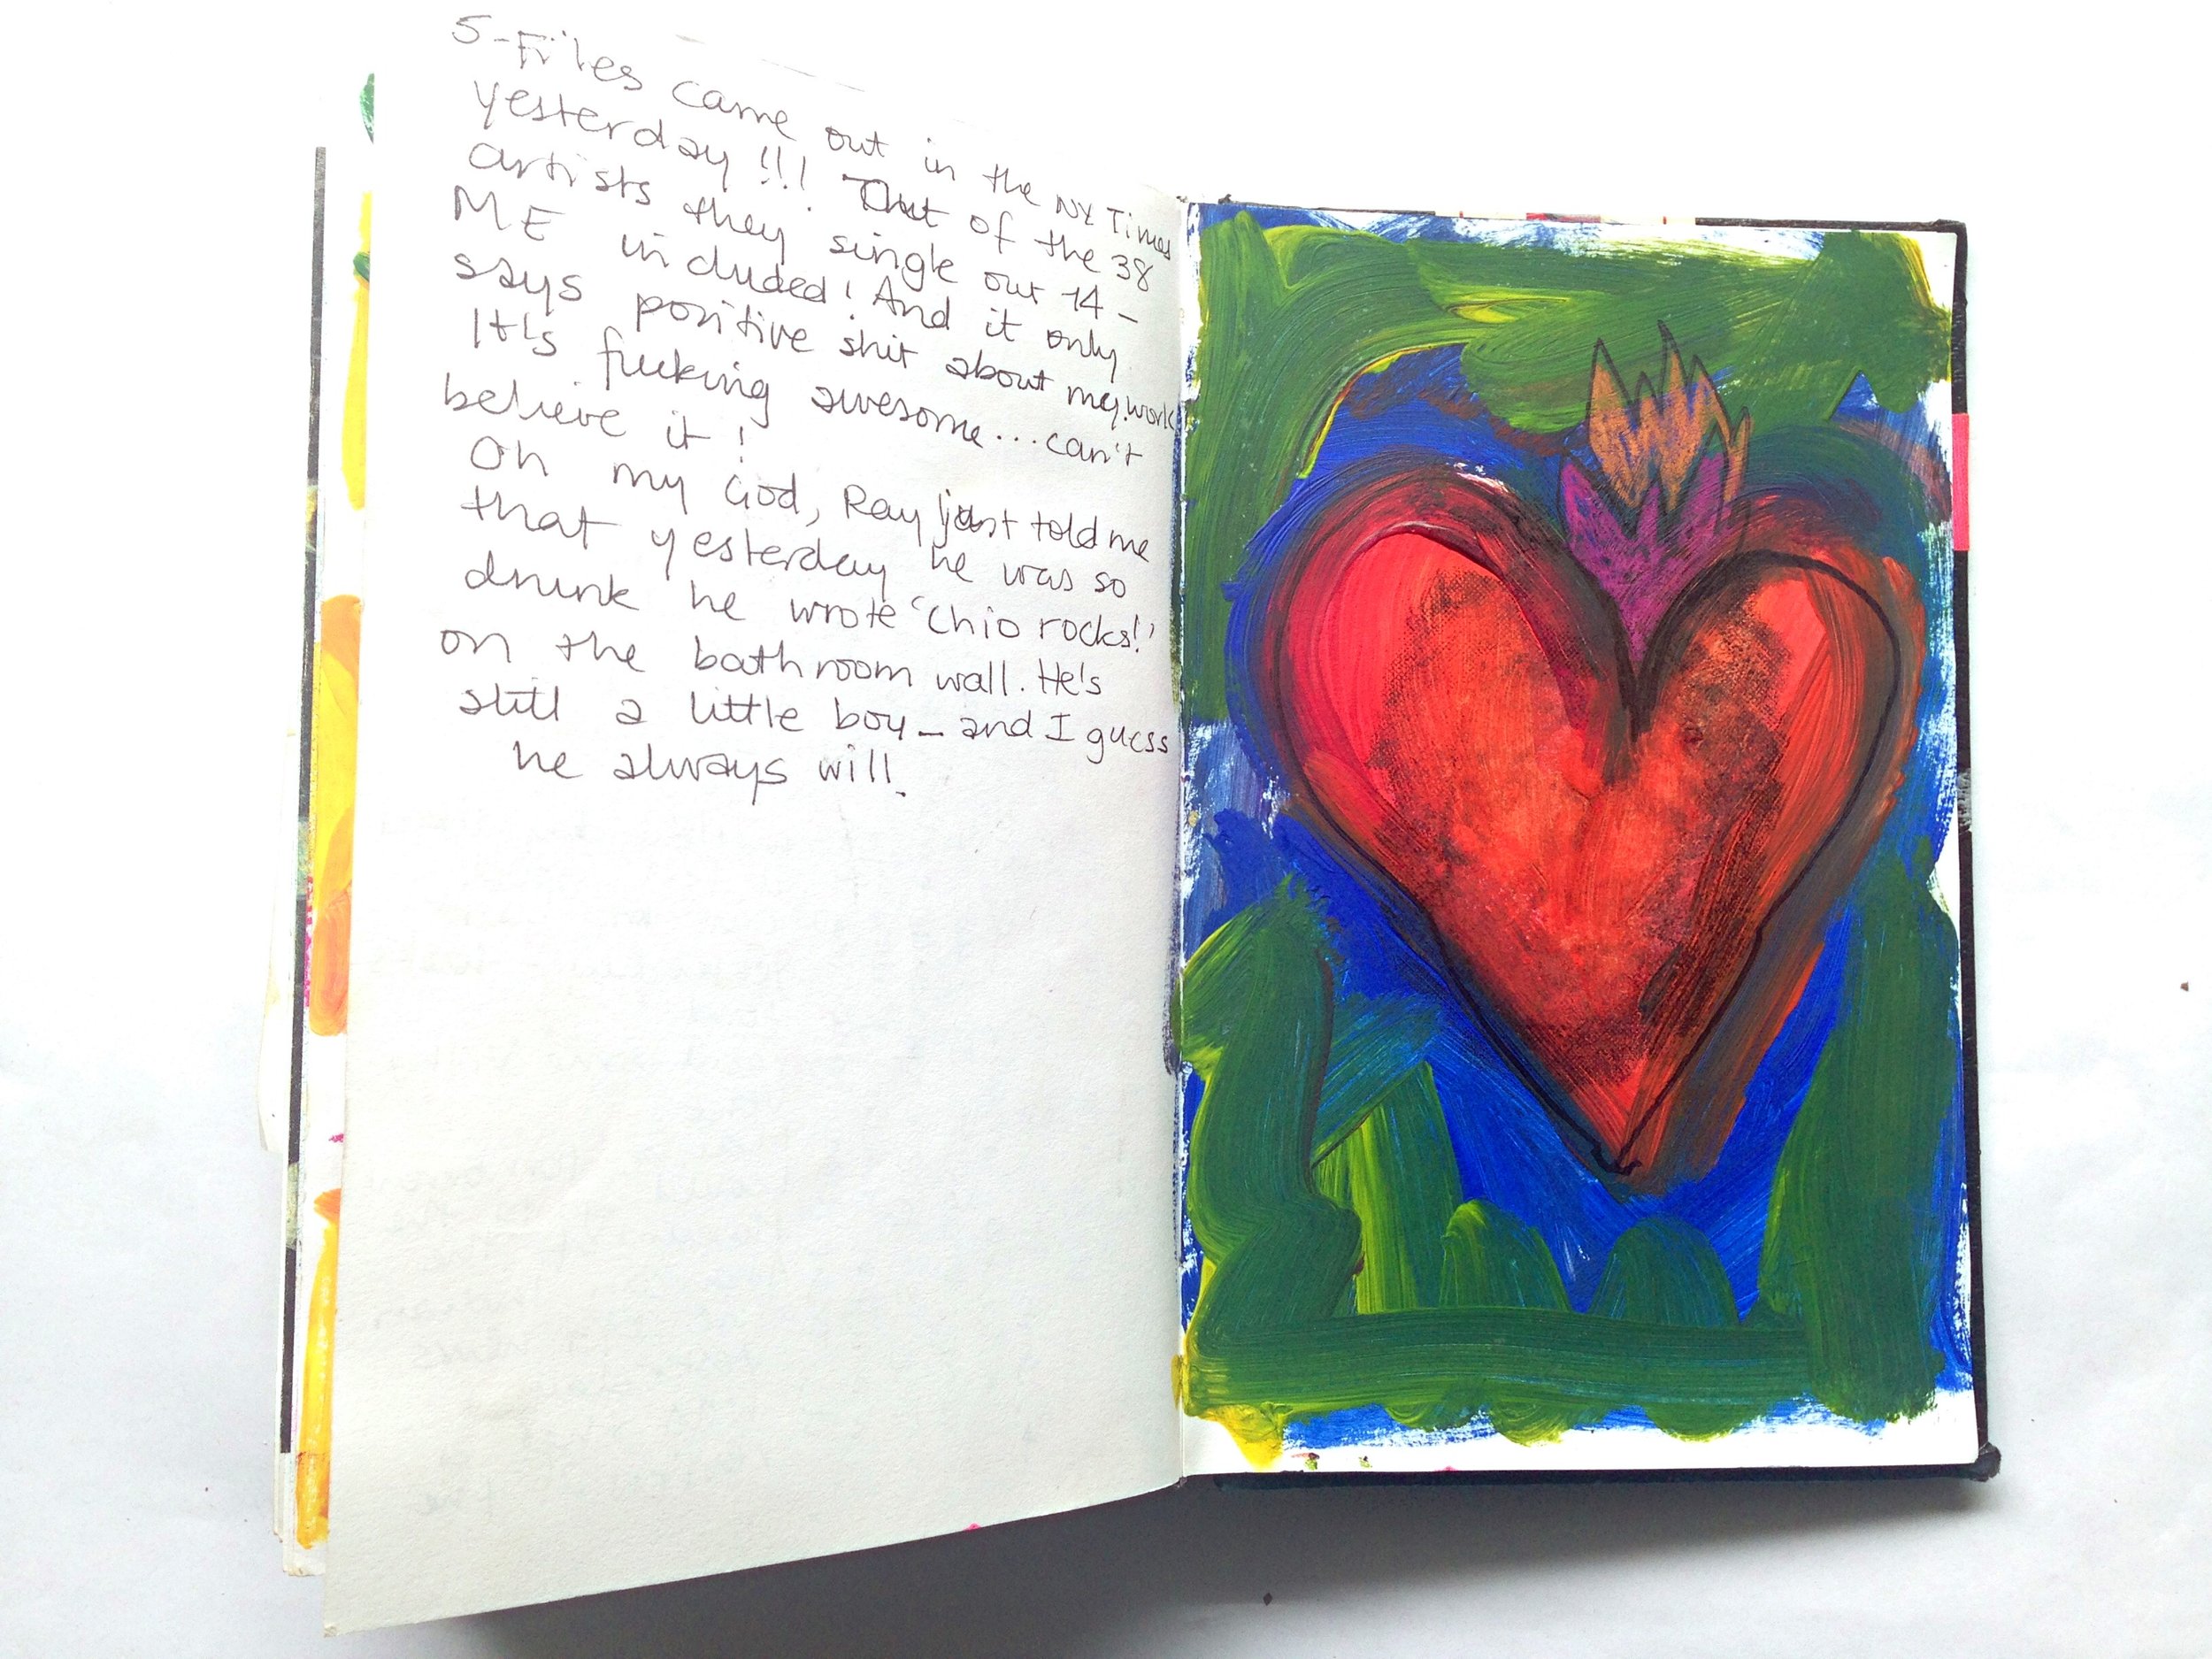 S-Files came out in the NY Times
yesterday!!! Out of the 38
artists they single out 14 -
ME included! And it only
says positive shit about my work
It's fucking awesome... can't
believe it!
Oh my God, Ray just told me
that yesterday he was so
drunk he wrote 'Chio rocks!'
on the bathroom wall. He's
still a little boy - and I guess
he always will.